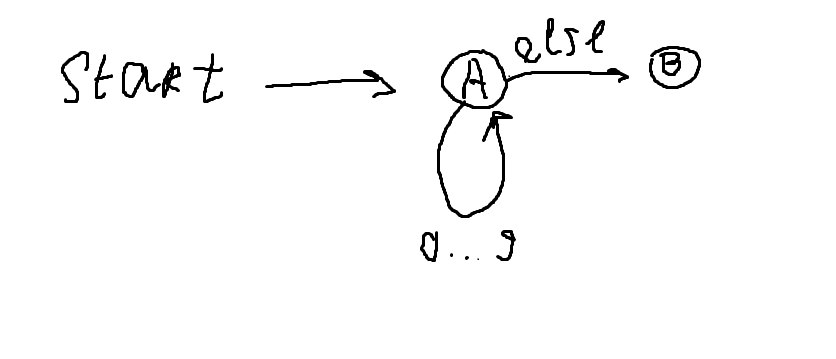 Start
A
else
B
0...9